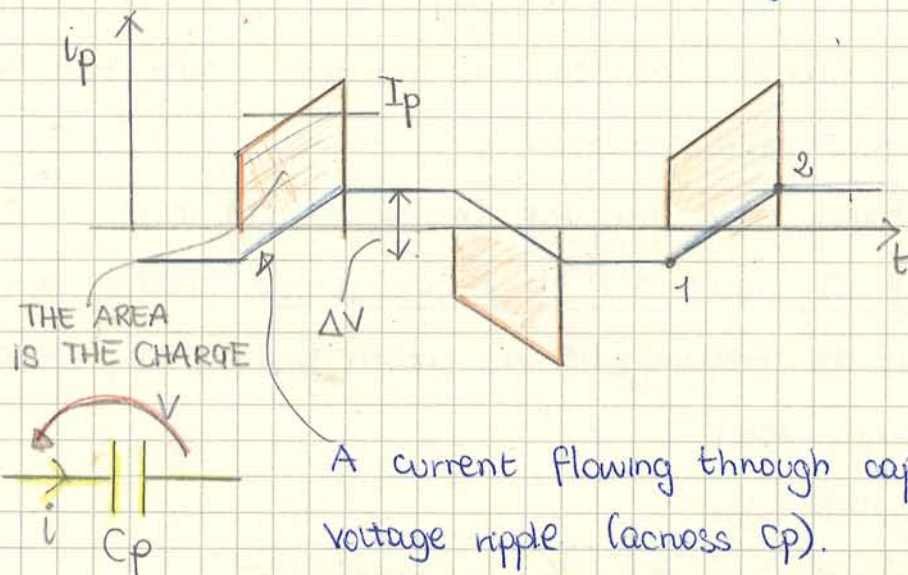 ip
Ip
2
t
1
ΔV
THE AREA
iS THE CHARGE
V
i
Cp
A current flowing through cap
voltage ripple (across Cp).